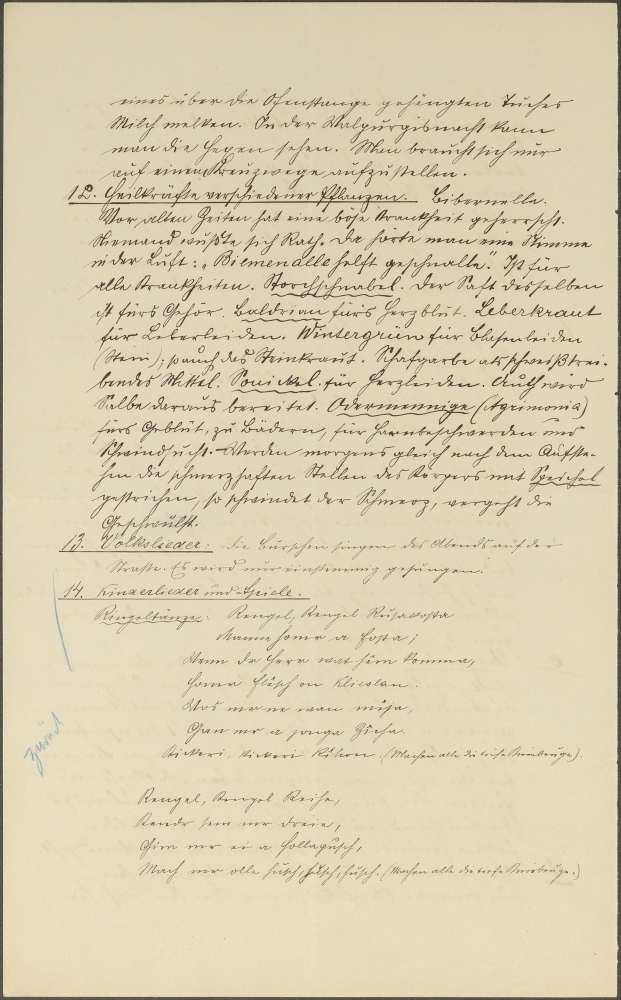 eines über die Ofenstange gehängten Tuches
Milch melken. In der Walpurgisnacht kann
man die Hexen sehen. Man braucht sich nur
auf einen Kreuzwege aufzustellen.
12. Heilkräfte verschiedener Pflanzen. Bibernelle.
Vor alten Zeiten hat eine böse Krankheit geherrscht.
Niemand wußte sich Rath. Da hörte man eine Stimme
in der Luft: „Biemenalle helft geschnalle". Ist für
alle Krankheiten. Storchschnabel. Der Saft desselben
ist fürs Gehör. Baldrian fürs Herzblut. Leberkraut
für Leberleiden. Wintergrün für Blasenleiden
(Stein); so auch das Steinkraut. Schafgarbe als schweißtrei-
bendes Mittel. Sonickel für Herzleiden. Auch wird
Salbe daraus bereitet. Odermennige (Agrimonia)
fürs Geblüt, zu Bädern, für Harnbeschwerden und
Schwindsucht. Werden morgens gleich nach dem Aufste-
hen die schmerzhaften Stellen des Körpers mit Speichel
gestrichen, so schwindet der Schmerz, vergeht die
Geschwulst.
13. Volkslieder: die Burschen singen des Abends auf der
Straße. Es wird nur einstimmig gesungen.
14. Kinderlieder und -Spiele.
Ringeltänze: Rengel, Rengel Rusakosta
Manne honn a Fosta;
Wenn dr Herr wat heim komma,
Honn Flesch on
Wos mr ne wan
Gan mr a jonga Zicha.
Kickeri, Kickeri (Machen alle die tiefe Kniebeuge).
zurück
Rengel, Rengel Reihe,
sem mr dreie,
mr ei a Hollapusch,
Mach mr olle husch, husch, husch. (Machen alle die tiefe Kniebeuge.)